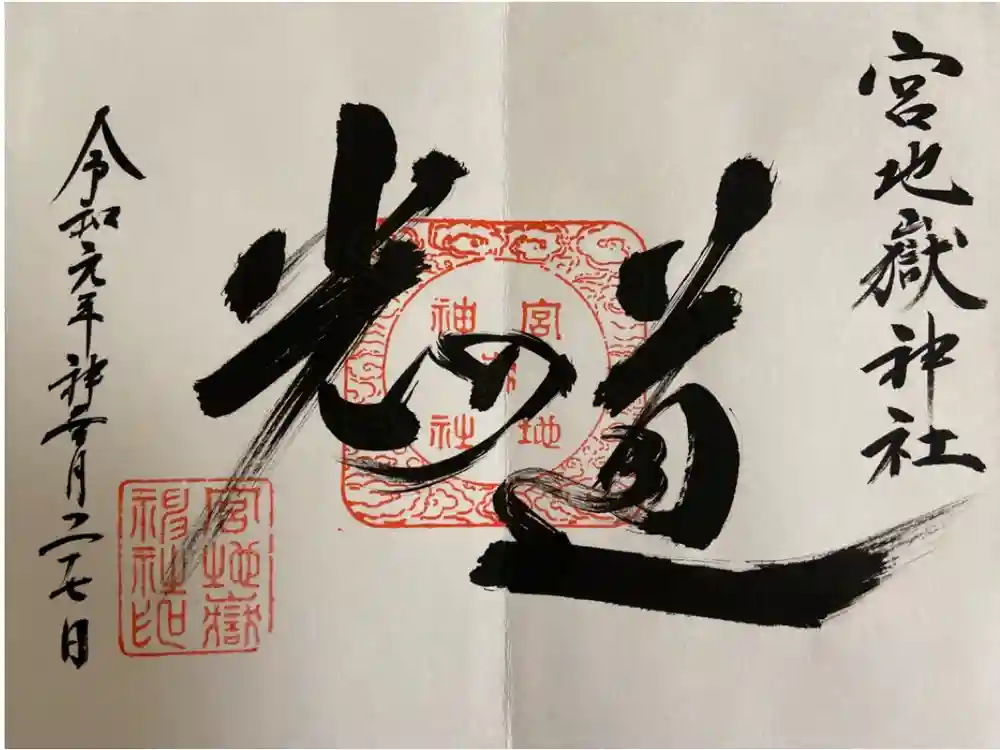 宮地嶽神社
光の道
宮地嶽
神社
令和元年神無月二十七日
宮地嶽
神社印